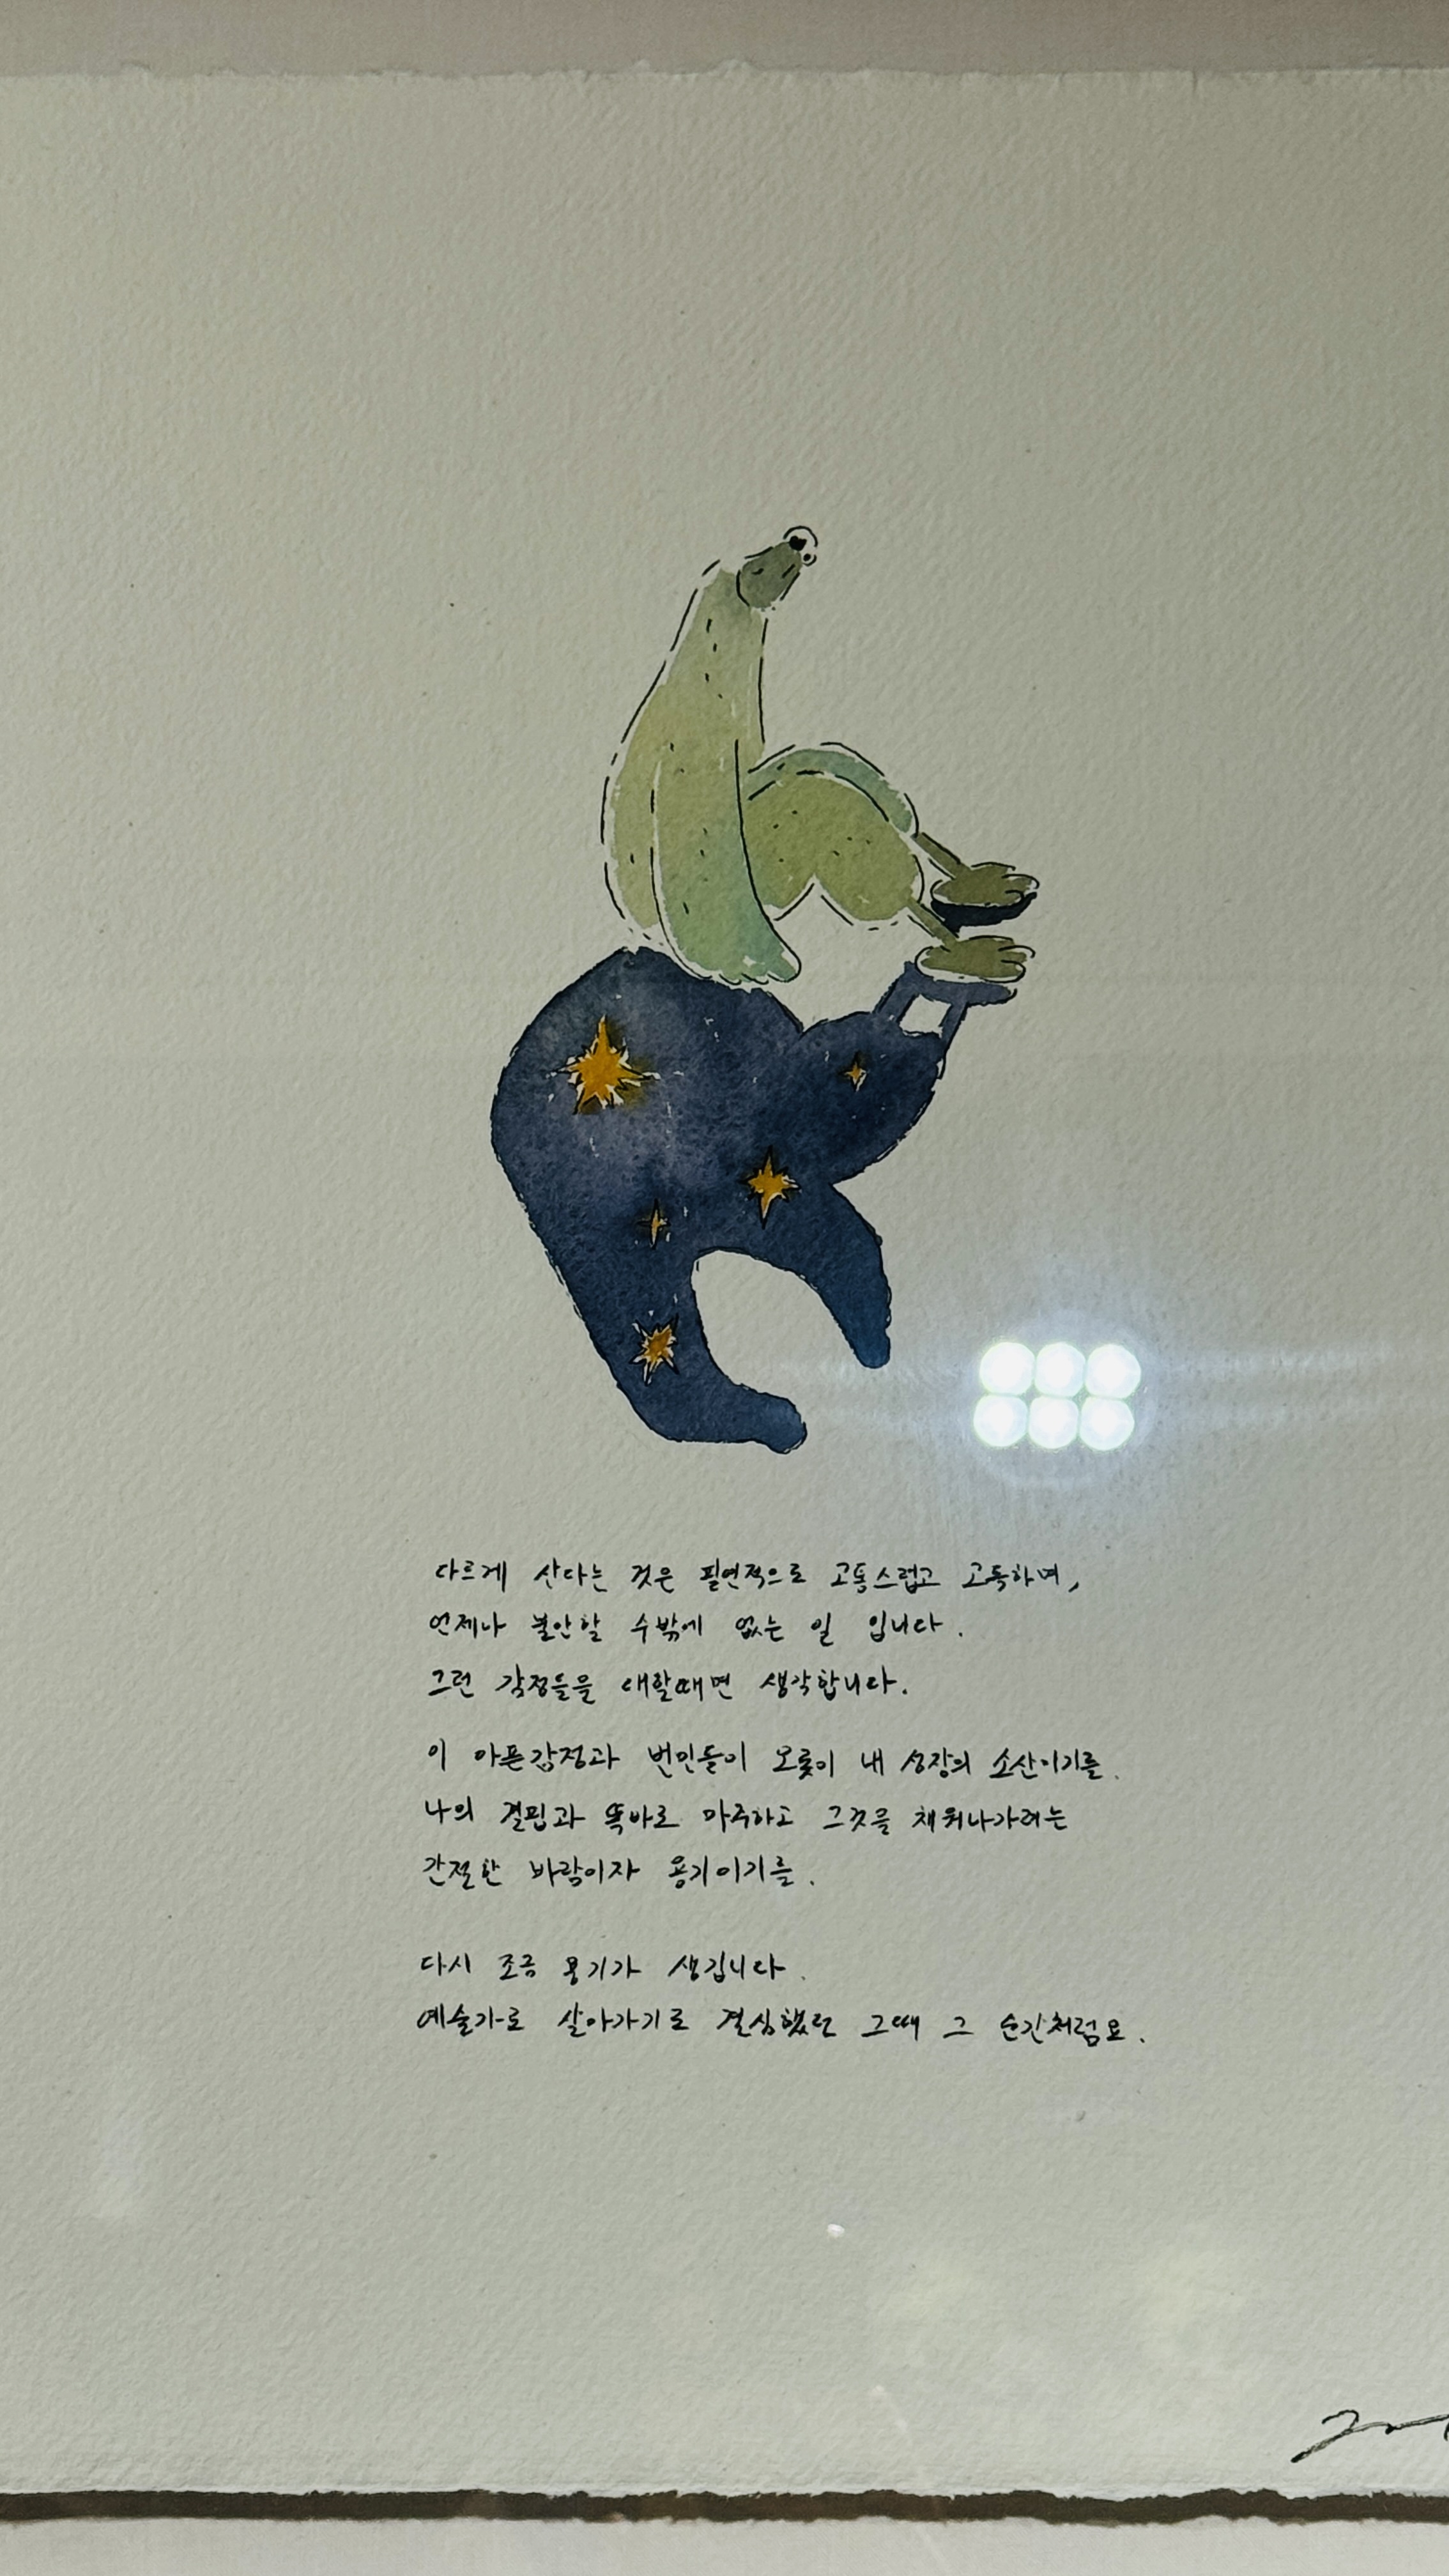 다르게 산다는 것은 필연적으로 고통스럽고 고독하며,
언제나 불안할 수밖에 없는 일 입니다.
그런 감정들을 대할때면 생각합니다.
이 아픈감정과 번민들이 오롯이 내 성장의 소산이기를.
나의 결핍과 똑바로 마주하고 그것을 채워나가려는
간절한 바람이자 용기이기를.
다시 조금 용기가 생깁니다.
예술가로 살아가기로 결심했던 그때 그 순간처럼요.